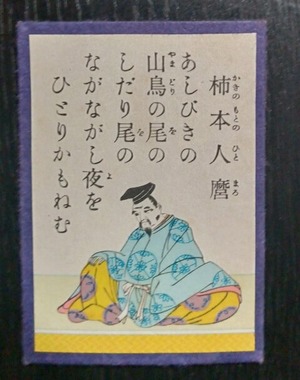 柿本人麿
かきのもとのひとまろ
あしびきの
山鳥の尾の
やまどりを
しだり尾の
を
ながながし夜を
よ
ひとりかもねむ